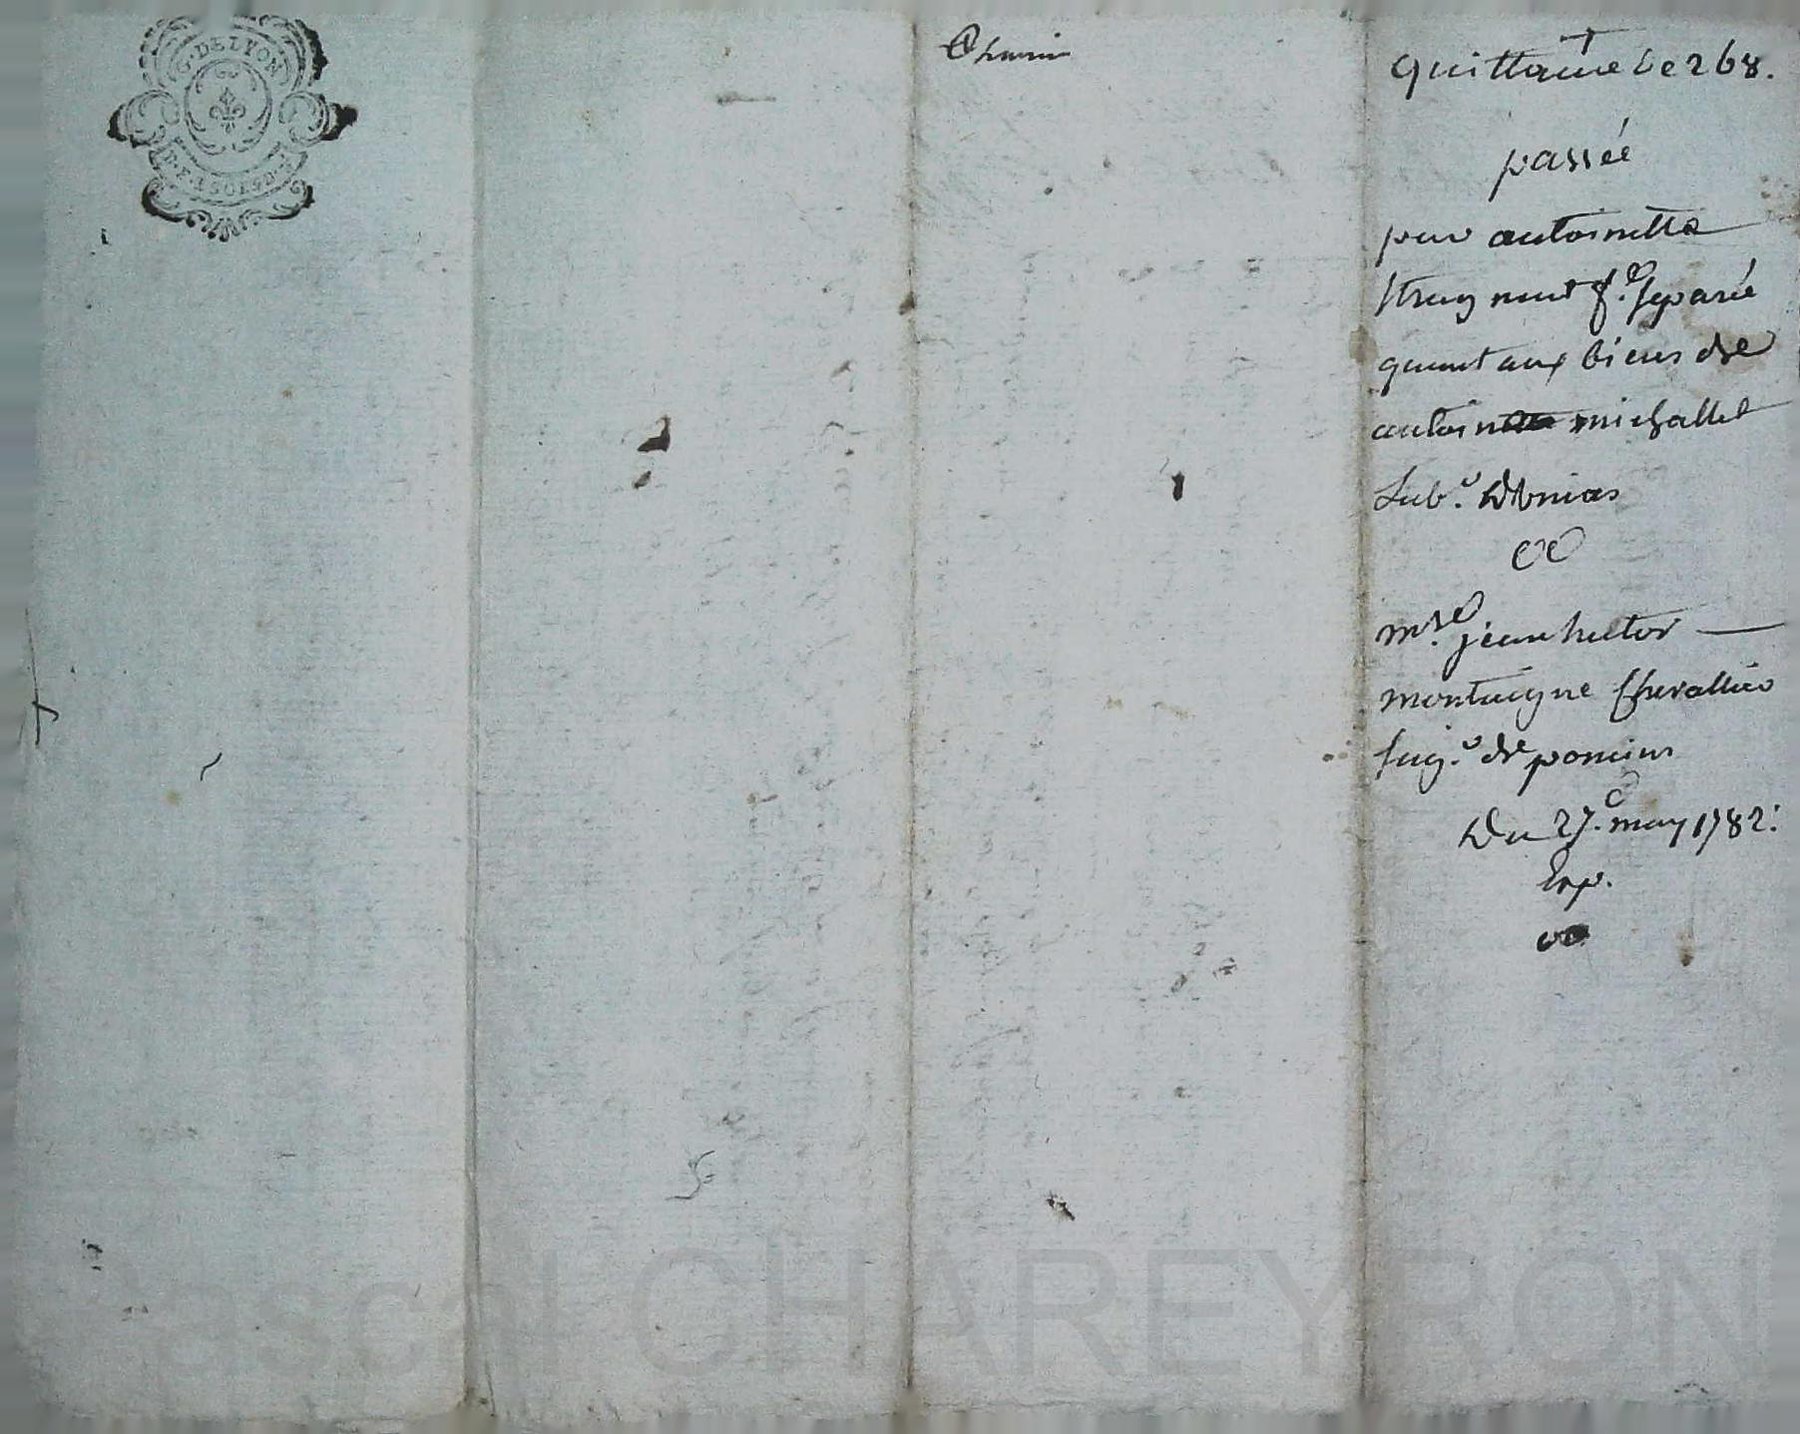 G. DE LYON
Chemin
quittance de 268.
passée
par antoinette
f.e separée
quant aux biens de
antoine michallet
Lab.r
a
m.re jean hector
montaigne chevallier
seig.r de poncins
Du 27.e may 1782.
Exp.
Pascal CHAREYRON